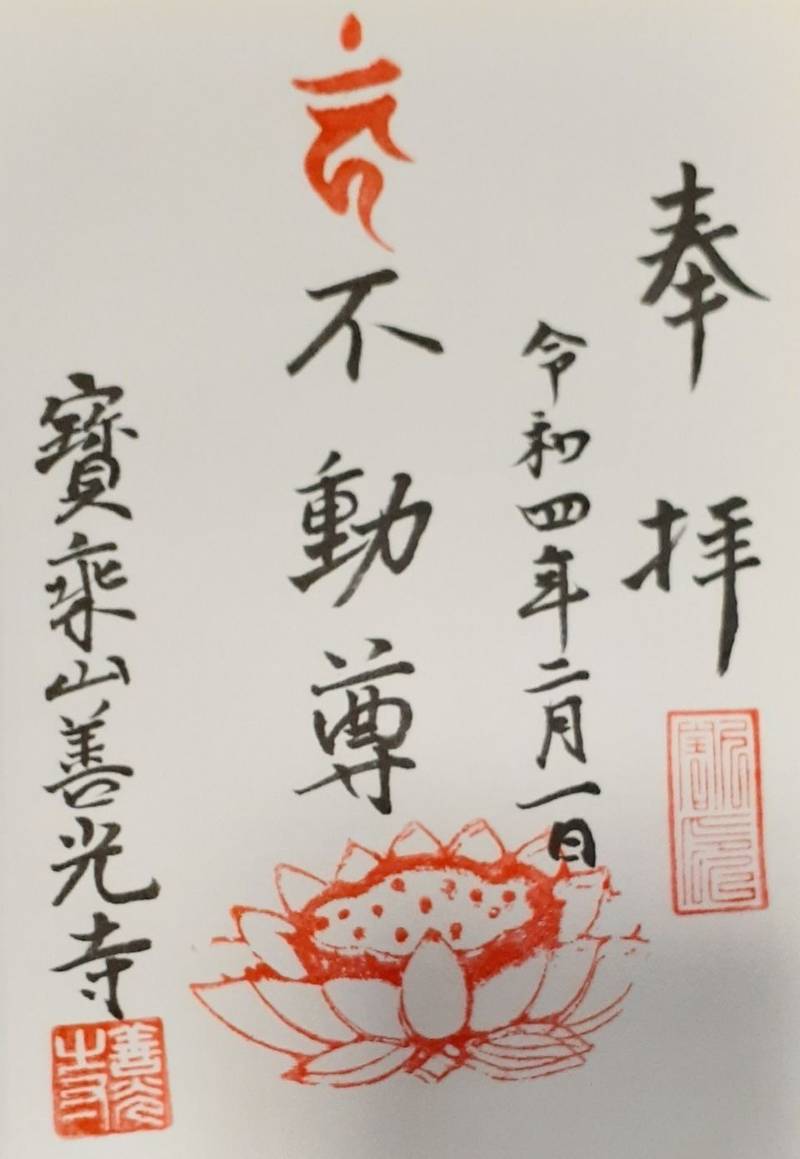 奉拝
令和四年二月一日
不動尊
寶乘山善光寺
善光
之印